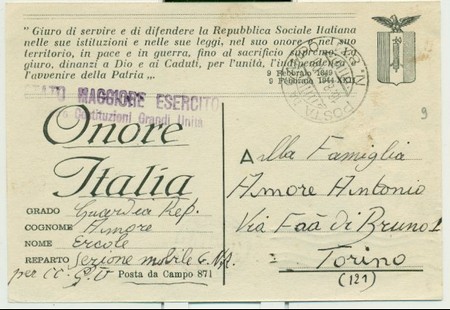 " Giuro di servire e di difendere la Repubblica Sociale Italiana
nelle sue istituzioni e nelle sue leggi, nel suo onore e nel suo
territorio, in pace e in guerra, fino al sacrificio supremo. Lo
giuro, dinanzi a Dio e ai Caduti, per l'unità, l'indipendenza
l'avvenire della Patria „.
9 Febbraio 1849
9 Febbraio 1944-XXII
STATO MAGGIORE ESERCITO
Costituzioni Grandi Unità
POSTA
9
Onore
Italia
Alla Famiglia
Amore Antonio
Via Faà di Bruno 1
Torino
(121)
GRADO Guardia Rep.
COGNOME Amore
NOME Ercole
REPARTO Sezione mobile G.N.R.
per CC. G.U Posta da Campo 871